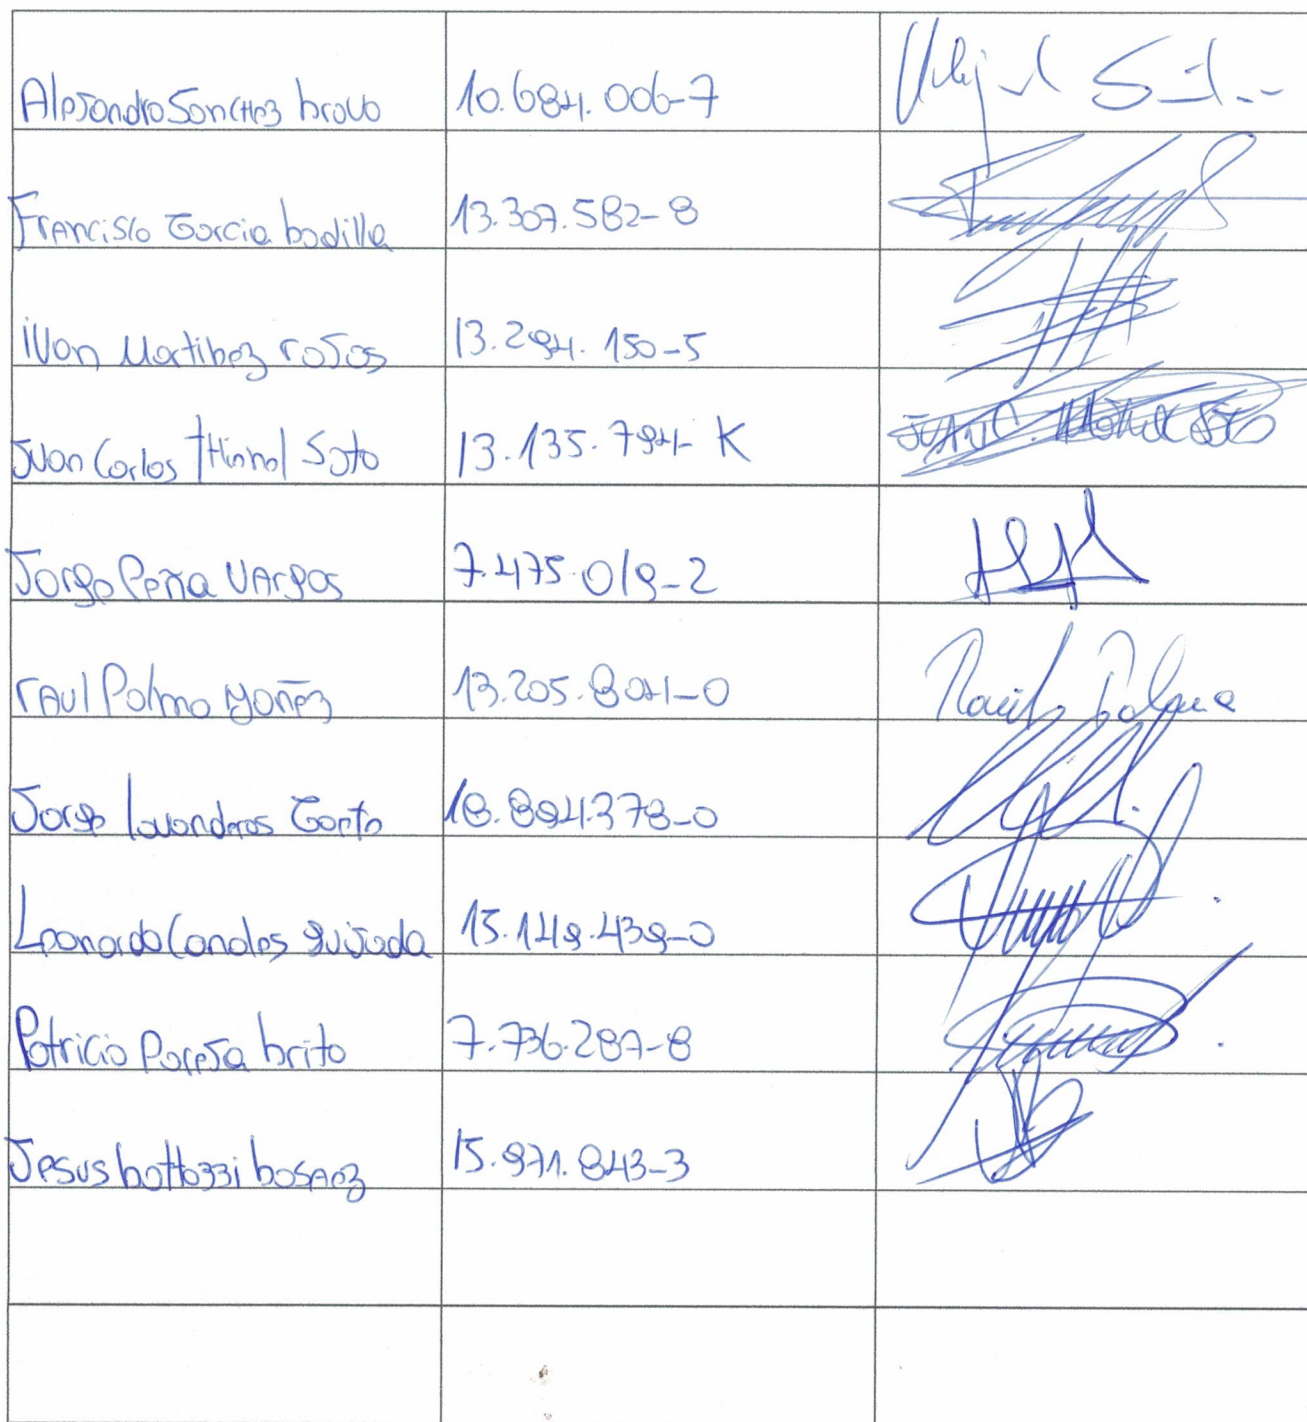 Alejandro Sanchez bravo 10.684.006-7
Francisco Garcia badilla 13.307.582-8
iVan Martinez rojas 13.294.150-5
Juan Carlos Soto 13.135.794-K JUAN C. SOTO
Jorge Peña VArgas 7.475.019-2
rAul Palma yañez 13.205.804-0 Raul Palma
Jorge lavanderos 18.894.378-0
Leonardo Canales quijada 15.149.439-0
Patricio Pareja brito 7.736.287-8
Jesus bottazzi 15.971.843-3